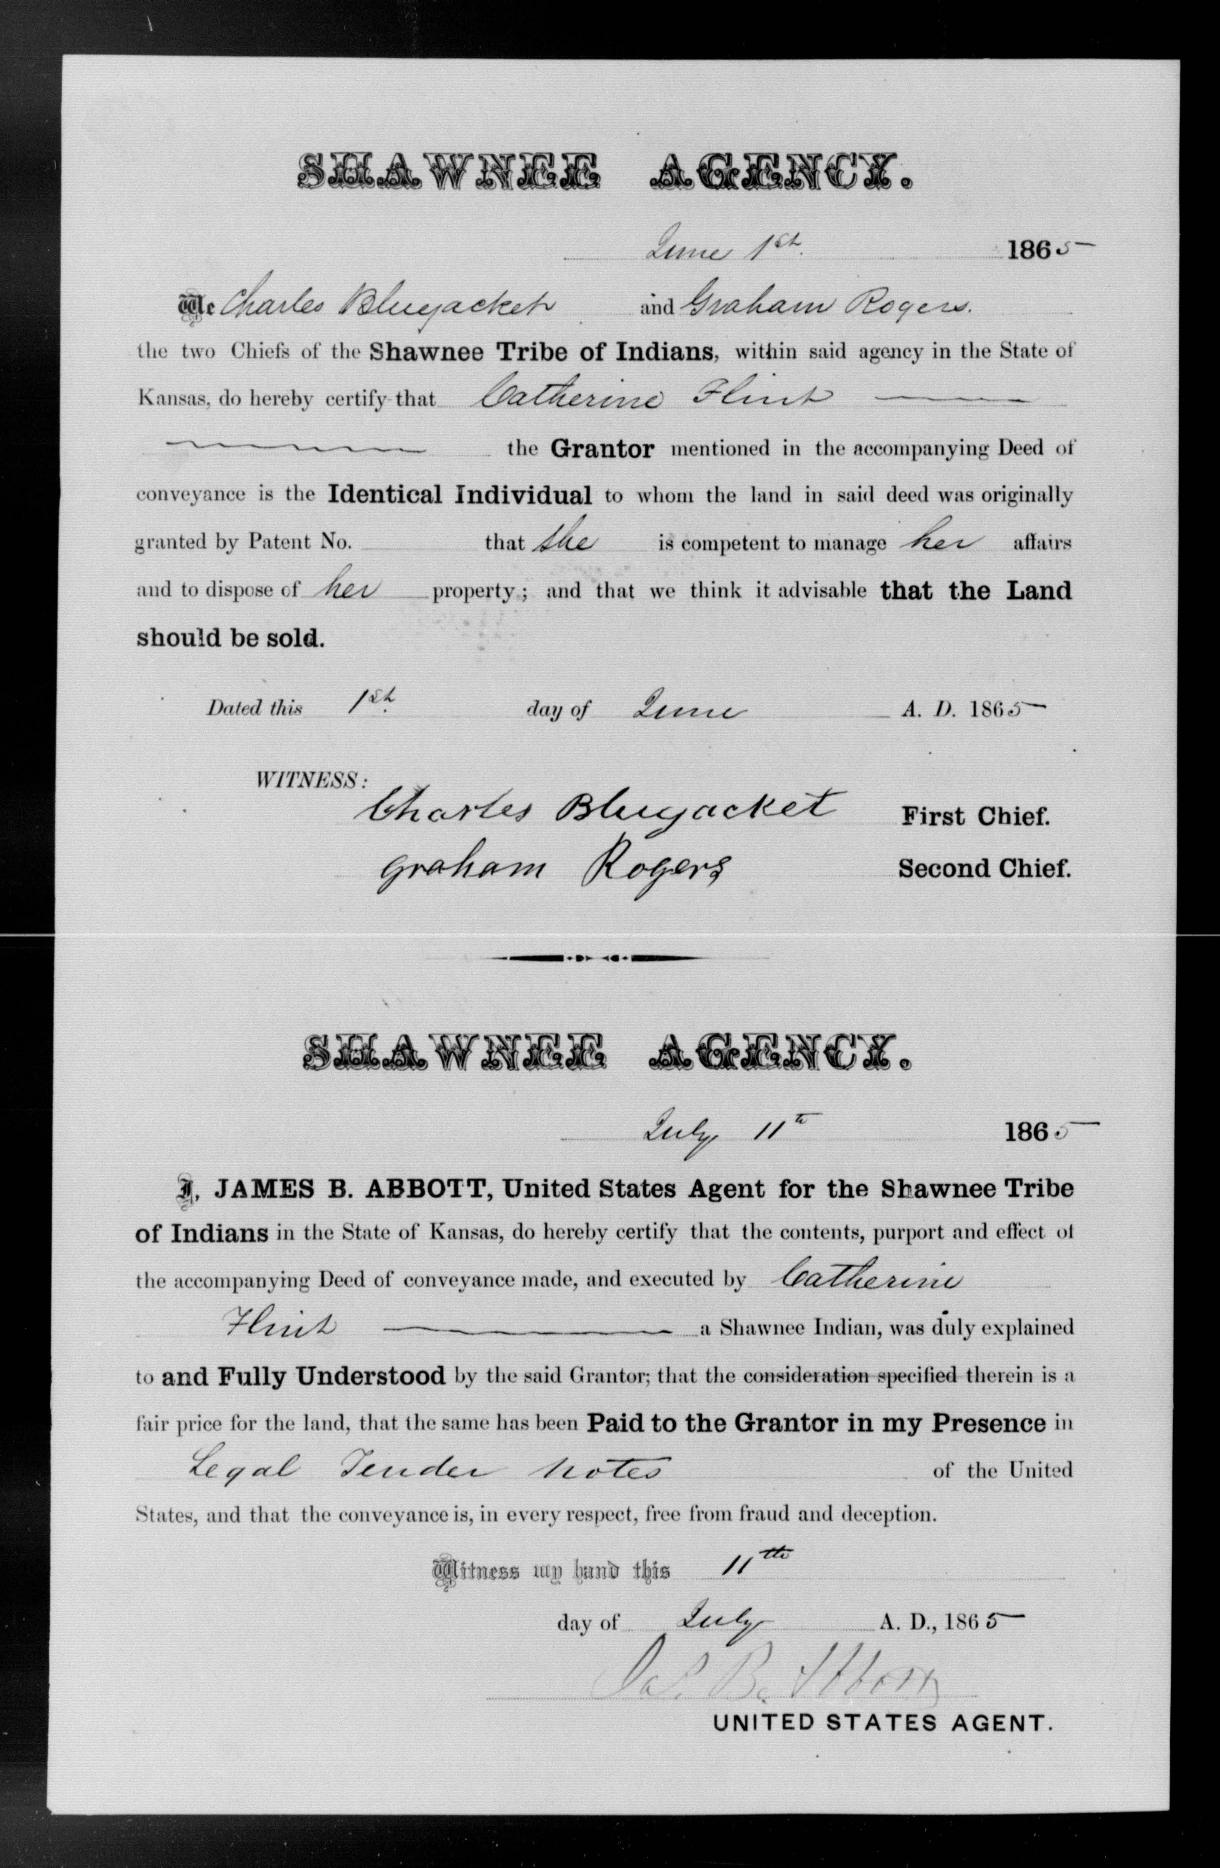 SHAWNEE AGENCY.
June 1st. 1865
We Charles Bluejacket and Graham Rogers.
the two Chiefs of the Shawnee Tribe of Indians, within said agency in the State of
Kansas, do hereby certify that Catherine Flint
the Grantor mentioned in the accompanying Deed of
conveyance is the Identical Individual to whom the land in said deed was originally
granted by Patent No. that she is competent to manage her affairs
and to dispose of her property; and that we think it advisable that the Land
should be sold.
Dated this 1st. day of June A. D. 1865
WITNESS:
Charles Bluejacket First Chief.
Graham Rogers Second Chief.
SHAWNEE AGENCY.
July 11th 1865
I, JAMES B. ABBOTT, United States Agent for the Shawnee Tribe
of Indians in the State of Kansas, do hereby certify that the contents, purport and effect of
the accompanying Deed of conveyance made, and executed by Catherine
Flint a Shawnee Indian, was duly explained
to and Fully Understood by the said Grantor; that the consideration specified therein is a
fair price for the land, that the same has been Paid to the Grantor in my Presence in
Legal Tender notes of the United
States, and that the conveyance is, in every respect, free from fraud and deception.
Witness my hand this 11th
day of July A. D., 1865
Jas. B. Abbott
UNITED STATES AGENT.